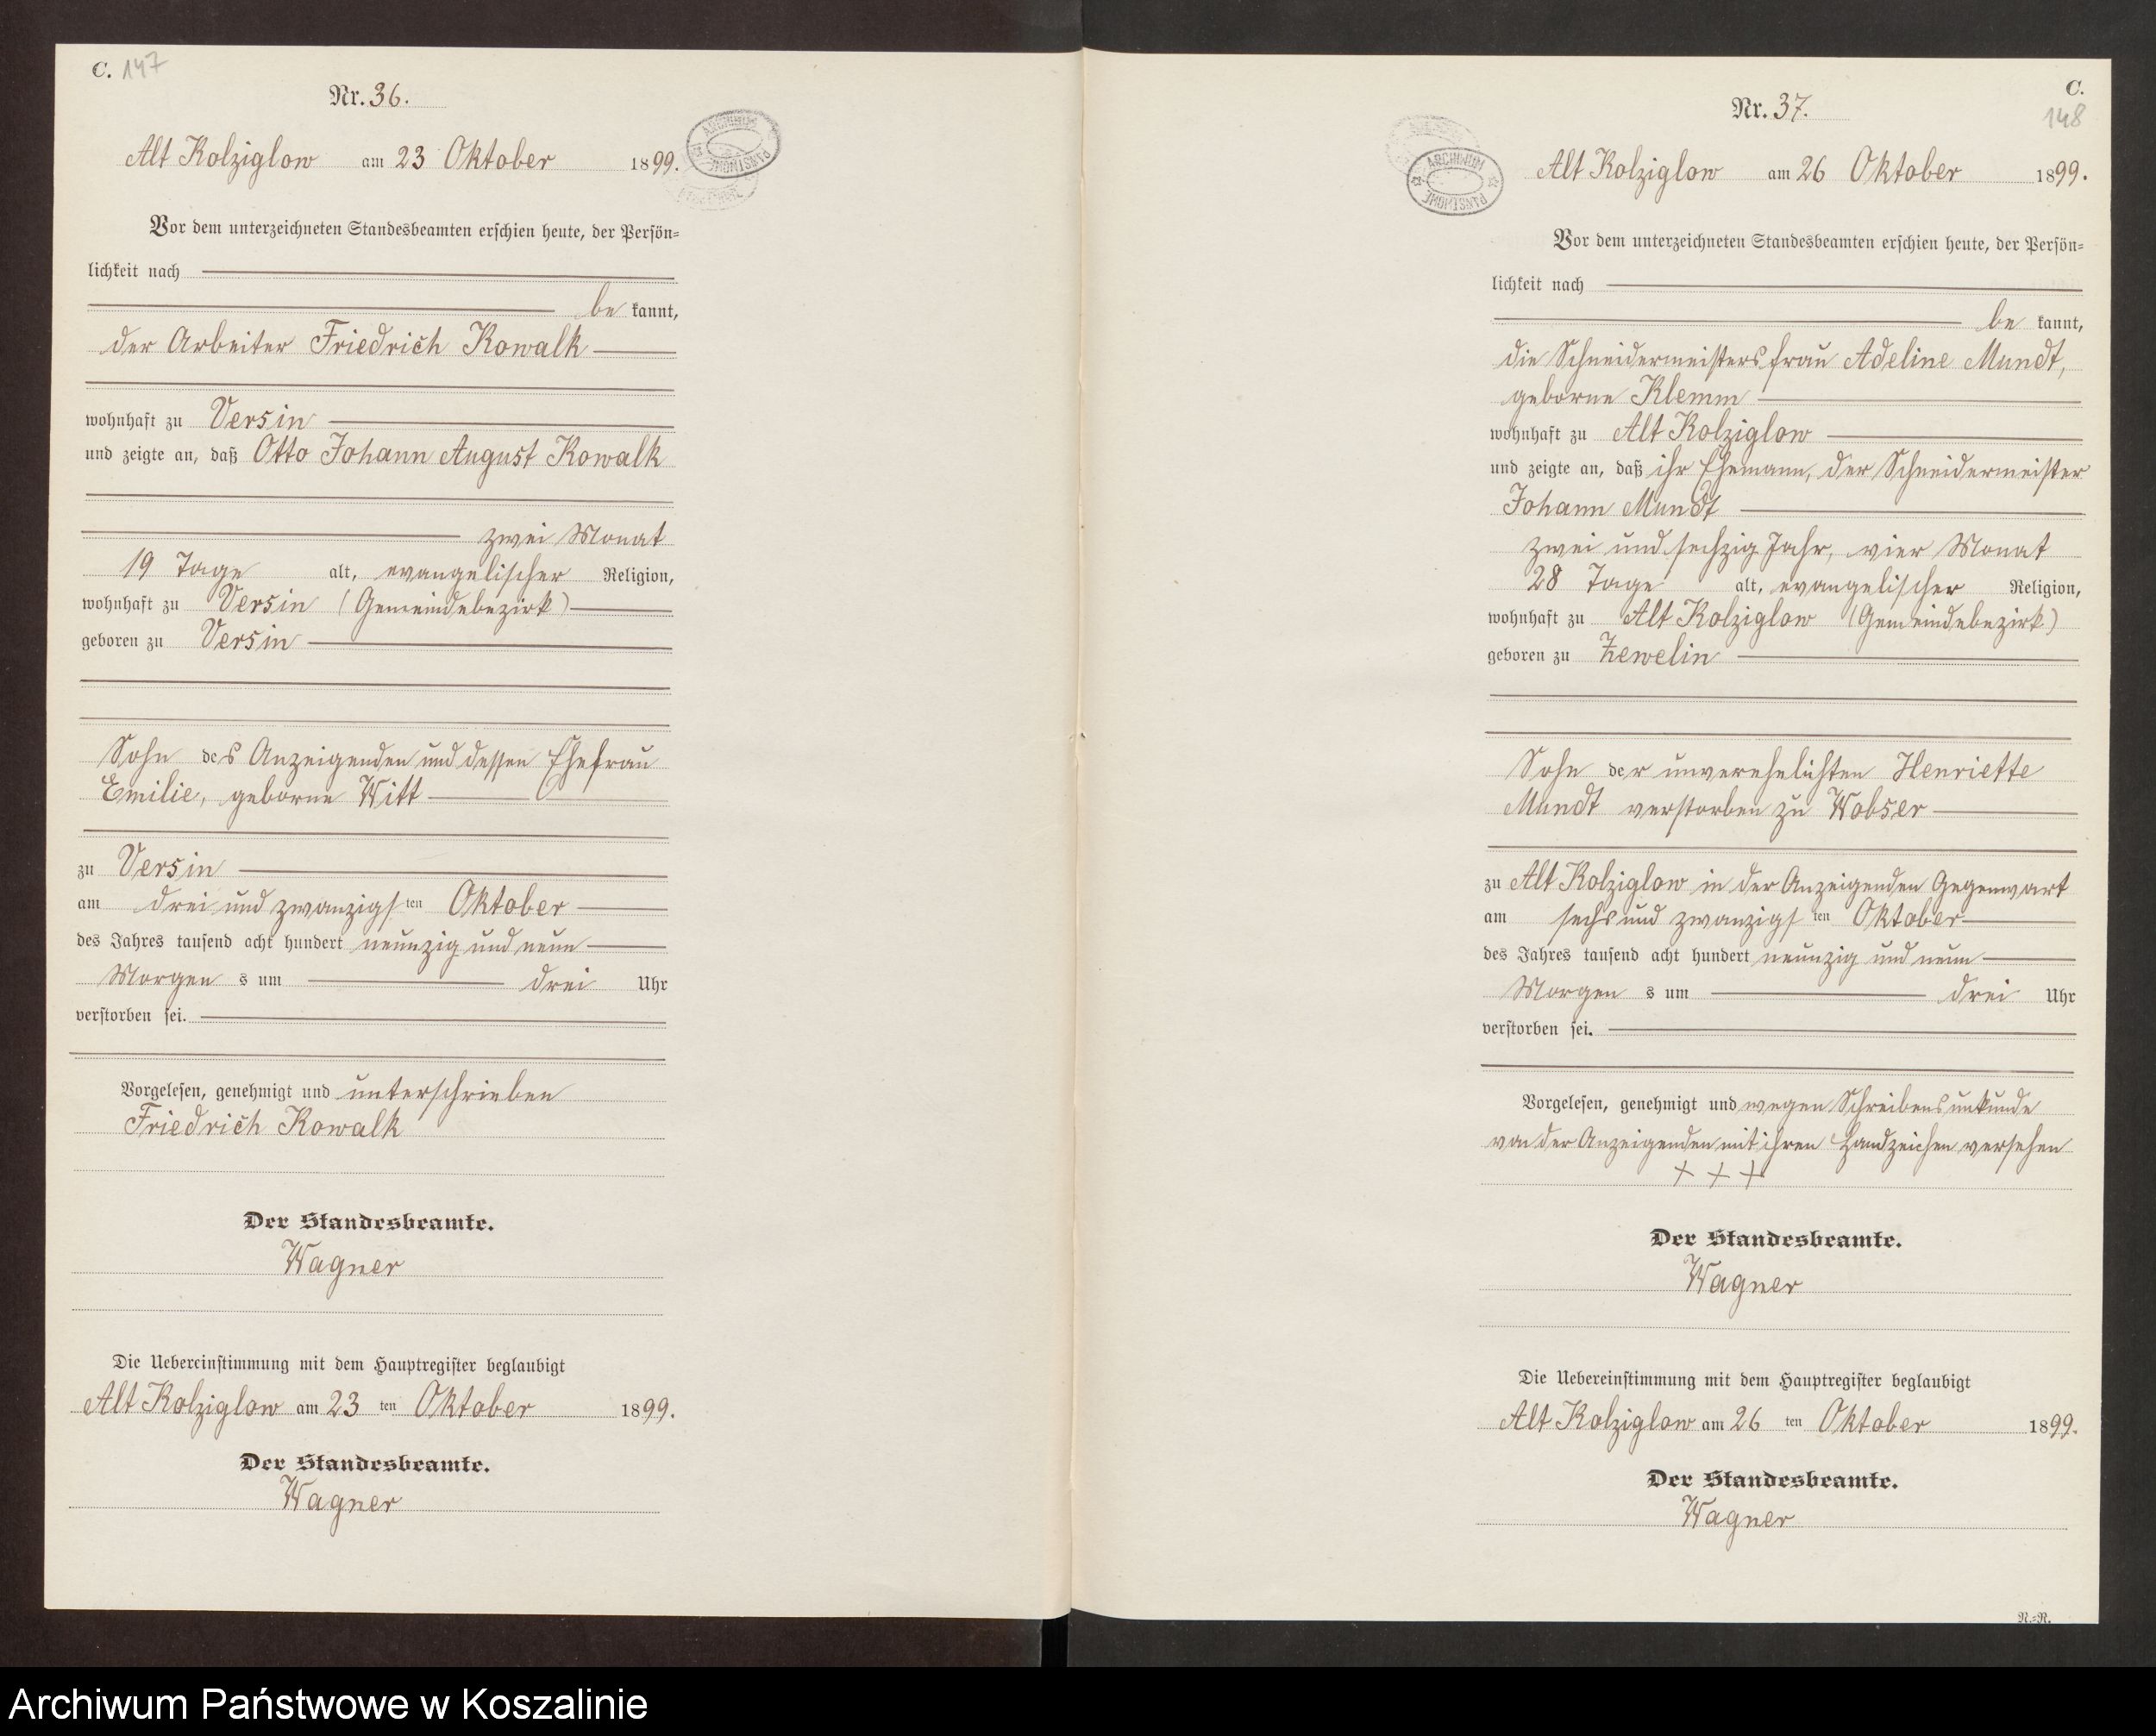 C. 147
Nr. 36.
Alt Kolziglow am 23 Oktober 1899.
ARCHIWUM PAŃSTWOWE
Vor dem unterzeichneten Standesbeamten erschien heute, der Persön=
lichkeit nach
be kannt,
der Arbeiter Friedrich Kowalk
wohnhaft zu Versin
und zeigte an, daß Otto Johann August Kowalk
zwei Monat
19 Tage alt, evangelischer Religion,
wohnhaft zu Versin (Gemeindebezirk)
geboren zu Versin
Sohn des Anzeigenden und dessen Ehefrau
Emilie, geborne Witt
zu Versin
am drei und zwanzigsten Oktober
des Jahres tausend acht hundert neunzig und neun
Morgen s um drei Uhr
verstorben sei.
Vorgelesen, genehmigt und unterschrieben
Friedrich Kowalk
Der Standesbeamte.
Wagner
Die Uebereinstimmung mit dem Hauptregister beglaubigt
Alt Kolziglow am 23 ten Oktober 1899.
Der Standesbeamte.
Wagner
C.
148
Nr. 37.
Alt Kolziglow am 26 Oktober 1899.
ARCHIWUM PAŃSTWOWE
Vor dem unterzeichneten Standesbeamten erschien heute, der Persön=
lichkeit nach
be kannt,
die Schneidermeistersfrau Adeline Mundt,
geborne Klemm
wohnhaft zu Alt Kolziglow
und zeigte an, daß ihr Ehemann, der Schneidermeister
Johann Mundt
zwei und sechzig Jahr, vier Monat
28 Tage alt, evangelischer Religion,
wohnhaft zu Alt Kolziglow (Gemeindebezirk)
geboren zu Zewelin
Sohn der unverehelichten Henriette
Mundt verstorben zu Wobser
zu Alt Kolziglow in der Anzeigenden Gegenwart
am sechs und zwanzigsten Oktober
des Jahres tausend acht hundert neunzig und neun
Morgen s um drei Uhr
verstorben sei.
Vorgelesen, genehmigt und wegen Schreibensunkunde
von der Anzeigenden mit ihren Handzeichen versehen
+ + +
Der Standesbeamte.
Wagner
Die Uebereinstimmung mit dem Hauptregister beglaubigt
Alt Kolziglow am 26 ten Oktober 1899.
Der Standesbeamte.
Wagner
N.=R.
Archiwum Państwowe w Koszalinie